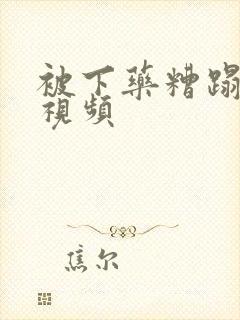 被下藥糟蹋
視頻
焦尔